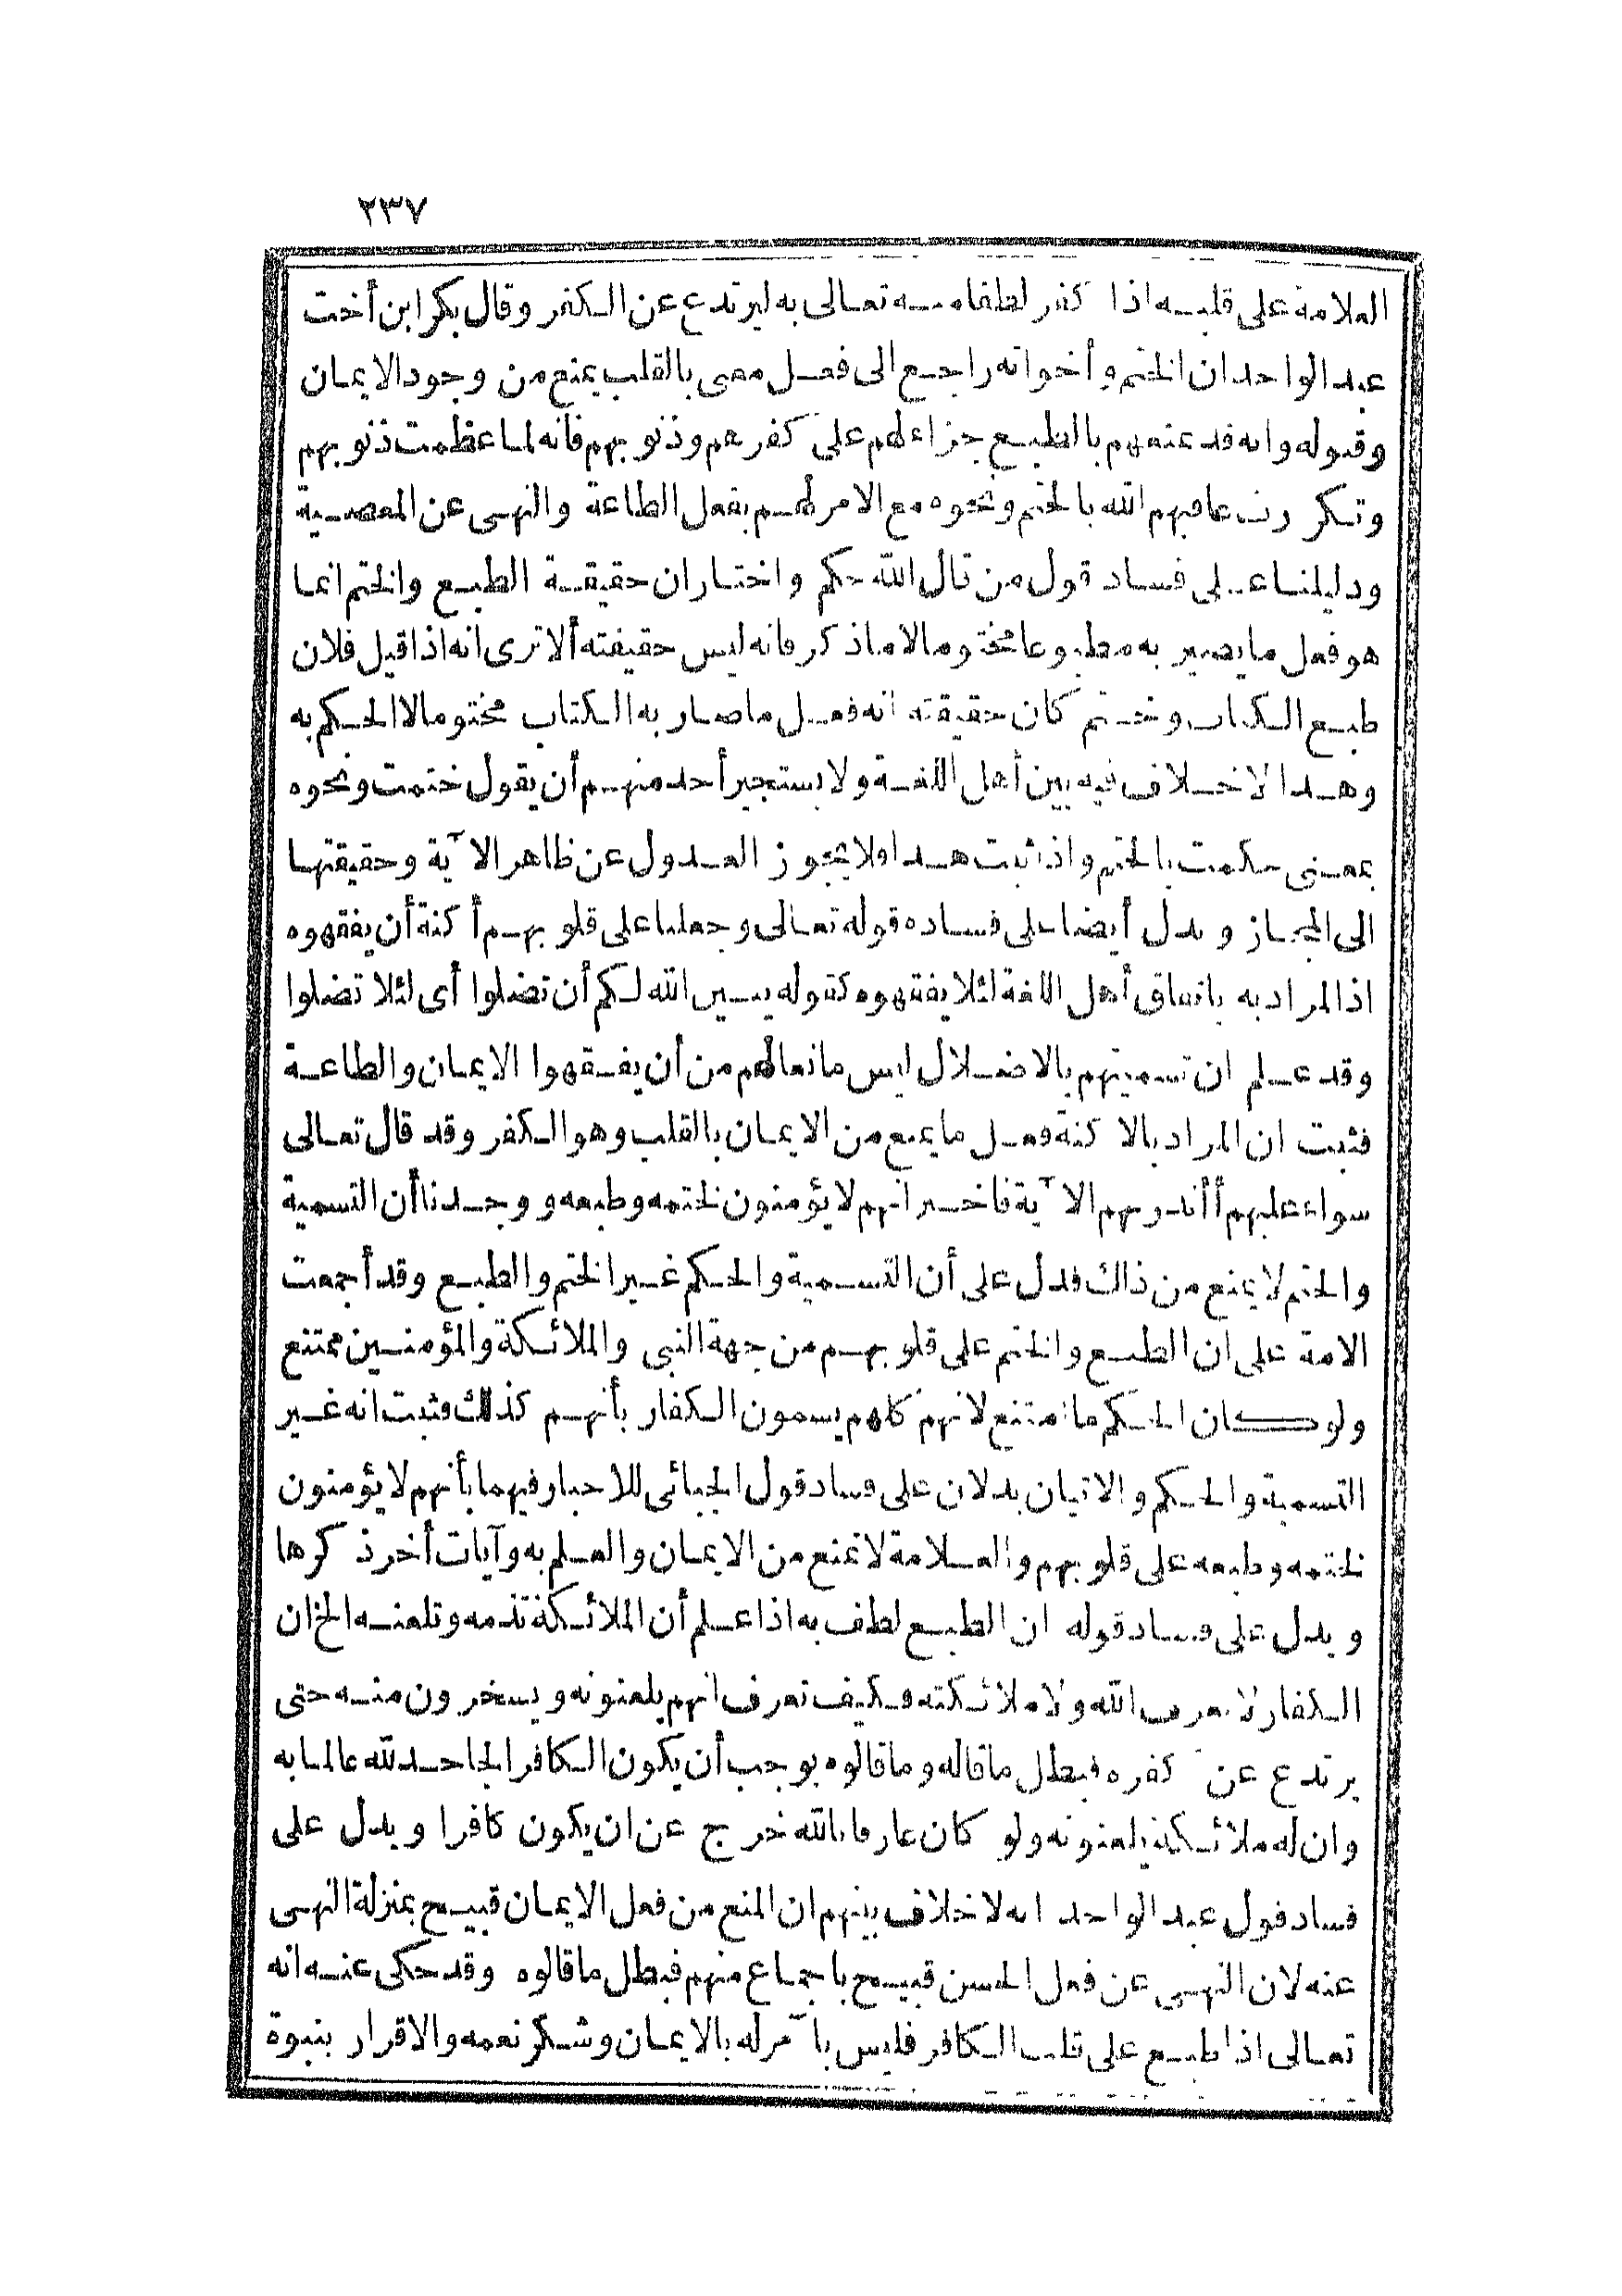 ٢٣٧
العلامة على قلبه اذا كفر لطفا منه تعالى به ليرتدع عن الكفر وقال بكر ابن أخت
عبد الواحد ان الختم وأخواته راجع الى فعل معنى بالقلب يمنع من وجود الايمان
وقبوله وانه قد عنفهم بالطبع جزاء لهم على كفرهم وذنوبهم فانه لما عظمت ذنوبهم
وتكررت عاقبهم الله بالختم ونحوه مع الامر لهم بفعل الطاعة والنهى عن المعصية
ودليلنا على فساد قول من قال الله حكم واختار ان حقيقة الطبع والختم انما
هو فعل ما يصير به مطبوعا مختوما لا ما ذكر فانه ليس حقيقته ألا ترى انه اذا قيل فلان
طبع الكتاب وختم كان حقيقته انه فعل ما صار به الكتاب مختوما لا الحكم به
وهذا لا خلاف فيه بين أهل اللغة ولا يستجيز أحد منهم أن يقول ختمت ونحوه
بمعنى حكمت بالختم واذ ثبت هذا فلا يجوز العدول عن ظاهر الآية وحقيقتها
الى المجاز ويدل أيضا على فساده قوله تعالى وجعلنا على قلوبهم أكنة أن يفقهوه
اذ المراد به باتفاق أهل اللغة لئلا يفقهوه كقوله يبين الله لكم أن تضلوا أى لئلا تضلوا
وقد علم ان تسميتهم بالاضلال ليس مانعا لهم من أن يفقهوا الايمان والطاعة
فثبت ان المراد بالاكنة فعل ما يمنع من الايمان بالقلب وهو الكفر وقد قال تعالى
سواء عليهم أأنذرتهم الآية فاخبر انهم لا يؤمنون لختمه وطبعه و وجدنا أن التسمية
والختم لا يمنع من ذلك فدل على أن التسمية والحكم غير الختم والطبع وقد أجمعت
الامة على ان الطبع والختم على قلوبهم من جهة النبى والملائكة والمؤمنين ممتنع
ولو كان الحكم ما امتنع لانهم كلهم يسمون الكفار بأنهم كذلك فثبت انه غير
التسمية والحكم والاتيان يدلان على فساد قول الجبائى للاخبار فيهما بأنهم لا يؤمنون
لختمه وطبعه على قلوبهم والعلامة لا تمنع من الايمان والعلم به وآيات أخر ذكرها
ويدل على فساد قوله ان الطبع لطف به اذا علم أن الملائكة تذمه وتلعنه الخ ان
الكفار لا تعرف الله ولا ملائكته فكيف تعرف انهم يلعنونه ويسخرون منه حتى
يرتدع عن كفره فبطل ما قاله وما قالوه يوجب أن يكون الكافر الجاحد لله عالما به
وان له ملائكة يلعنونه ولو كان عارفا بالله خرج عن ان يكون كافرا ويدل على
فساد قول عبد الواحد انه لا خلاف بينهم ان المنع من فعل الايمان قبيح بمنزلة النهى
عنه لان النهى عن فعل الحسن قبيح باجماع منهم فبطل ما قالوه وقد حكى عنه انه
تعالى اذا طبع على قلب الكافر فليس بآمر له بالايمان وشكر نعمه والاقرار بنبوة